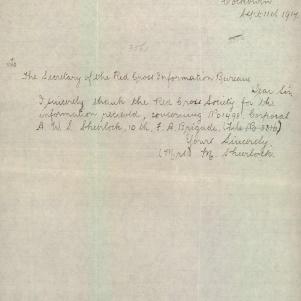 Sept 11th 1917
356
To
The Secretary of the Red Cross Information Bureau
Dear Sir,
I sincerely thank the Red Cross Society for the
information received, concerning No 1498 Corporal
A. W. S. Sheirlock, 10 th, F. A. Brigade,
Yours Sincerely
(Mrs) M. Sheirlock.